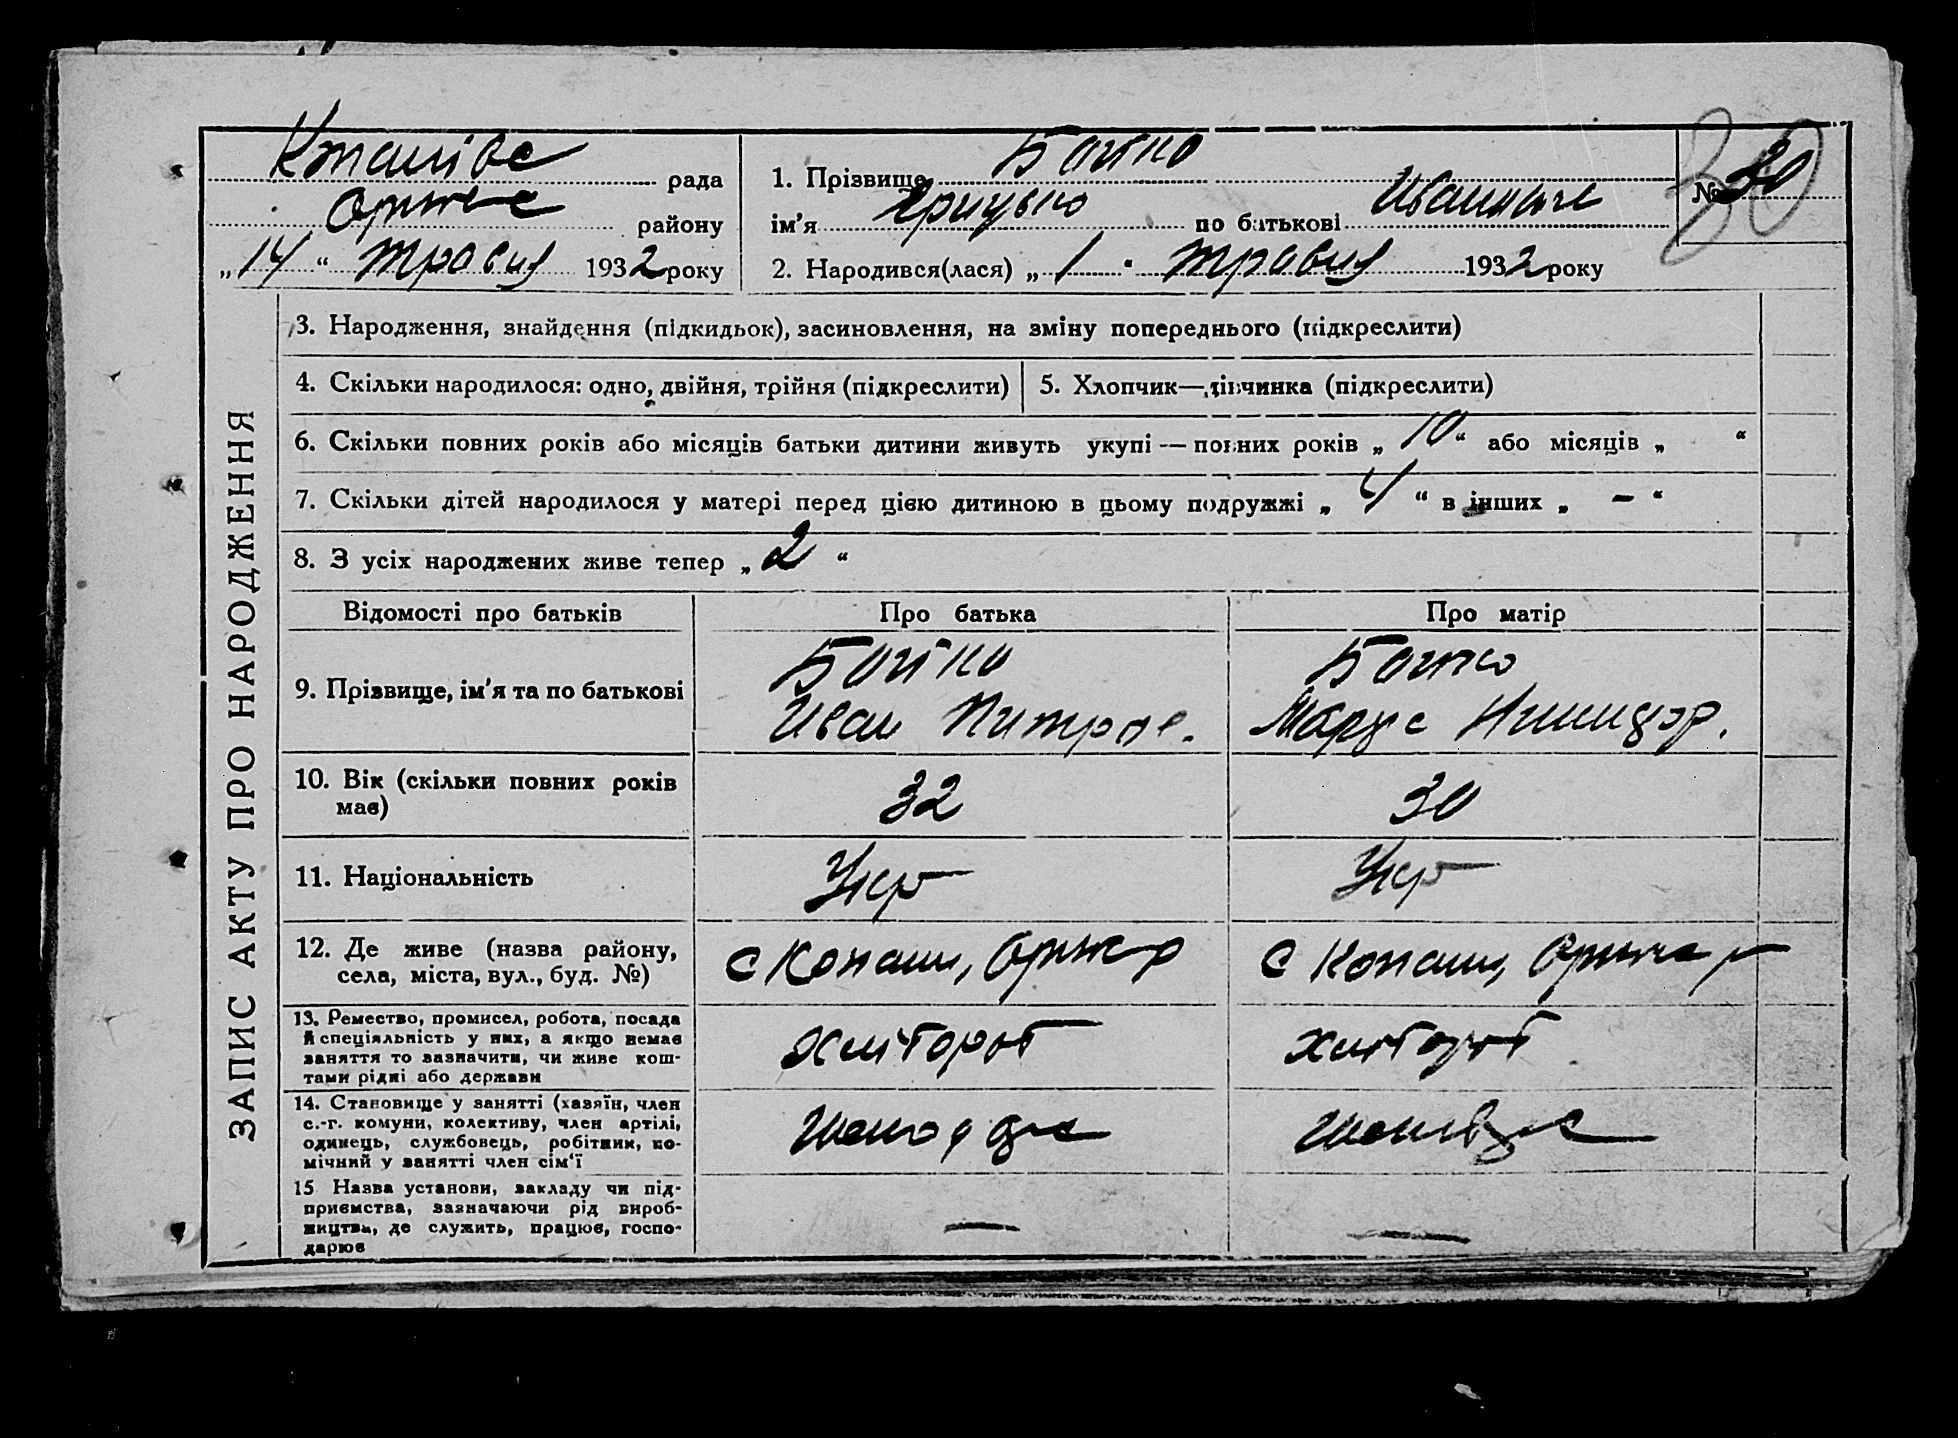 рада
району
„14“ травня 1932 року
1. Прізвище Бойко
ім'я Грицько по батькові Иванович
2. Народився(лася) „1“ травня 1932 року
№ 30
30
ЗАПИС АКТУ ПРО НАРОДЖЕННЯ
3. Народження, знайдення (підкидьок), засиновлення, на зміну попереднього (підкреслити)
4. Скільки народилося: одно, двійня, трійня (підкреслити)
5. Хлопчик—дівчинка (підкреслити)
6. Скільки повних років або місяців батьки дитини живуть укупі — повних років „10“ або місяців „ “
7. Скільки дітей народилося у матері перед цією дитиною в цьому подружжі „4“ в інших „ – “
8. З усіх народжених живе тепер „2“
Відомості про батьків
Про батька
Про матір
9. Прізвище, ім'я та по батькові
Бойко
Иван
Бойко
10. Вік (скільки повних років
має)
32
30
11. Національність
Укр
Укр
12. Де живе (назва району,
села, міста, вул., буд. №)
с
с
13. Ремество, промисел, робота, посада
й спеціяльність у них, а якщо немає
заняття то зазначити, чи живе кош-
тами рідні або держави
хлібороб
хлібороб
14. Становище у занятті (хазяїн, член
с.-г. комуни, колективу, член артілі,
одинець, службовець, робітник, по-
мічний у занятті член сім'ї
15 Назва установи, закладу чи під-
приємства, зазначаючи рід вироб-
ництва, де служить, працює, госпо-
дарює
—
—